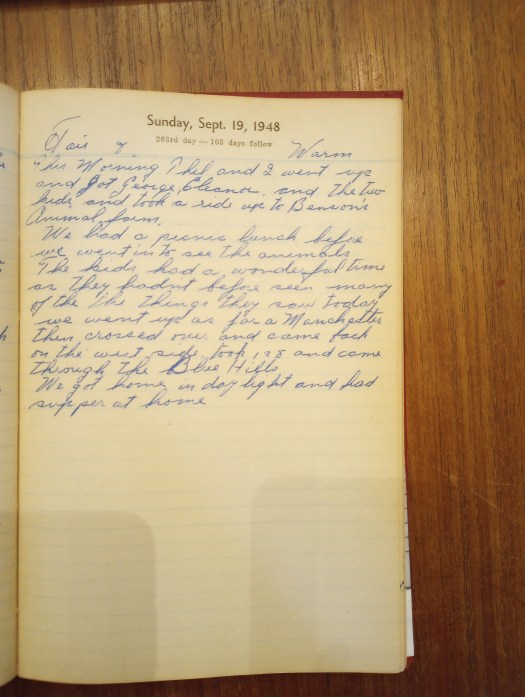 Sunday, Sept. 19, 1948
263rd day — 103 days follow
Fair & Warm
This Morning Phel and I went up
and got George, Eleanor, and the two
kids, and took a ride up to Benson's
Animal farm.
We had a picnic lunch before
we went in to see the animals
The kids had a wonderful time
as they hadn't before seen many
of the the things they saw today
we went up as far a Manchester
then crossed over and came back
on the west side, took 128 and came
through the Blue Hills
We got home in day light and had
supper at home